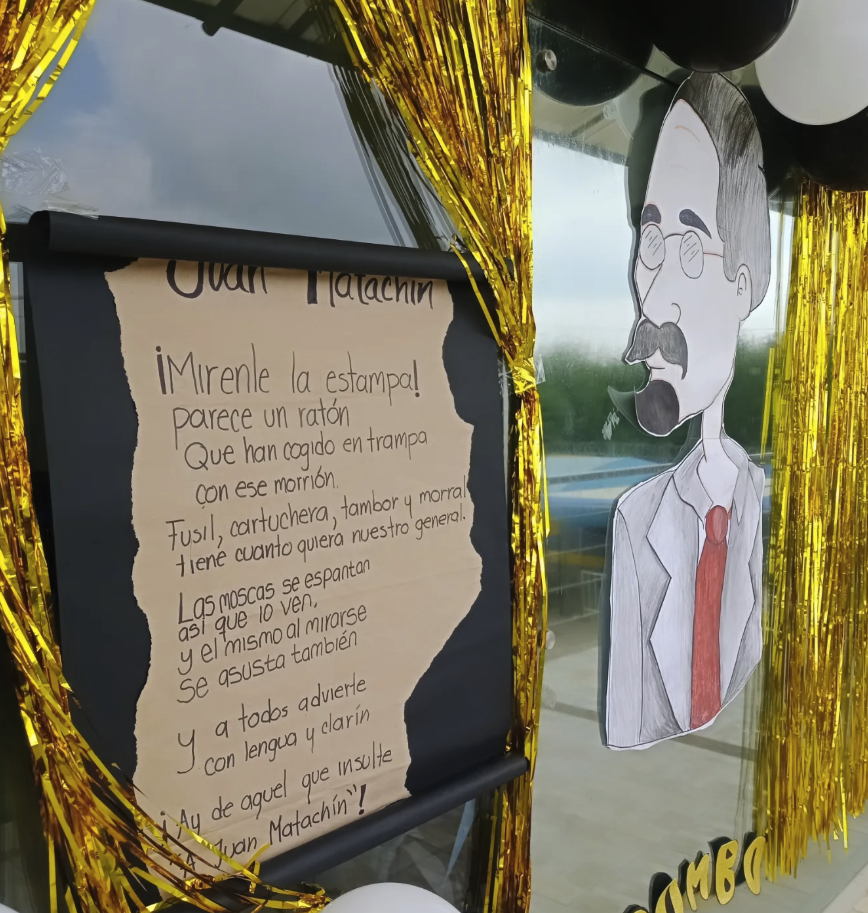 Juan Matachín
¡Mirenle la estampa!
parece un ratón
Que han cogido en trampa
con ese morrión.
Fusil, cartuchera, tambor y morral
tiene cuanto quiera nuestro general.
Las moscas se espantan
así que lo ven,
y el mismo al mirarse
se asusta también
y a todos advierte
con lengua y clarín
¡Ay de aquel que insulte
"A Juan Matachín"!
OMBO